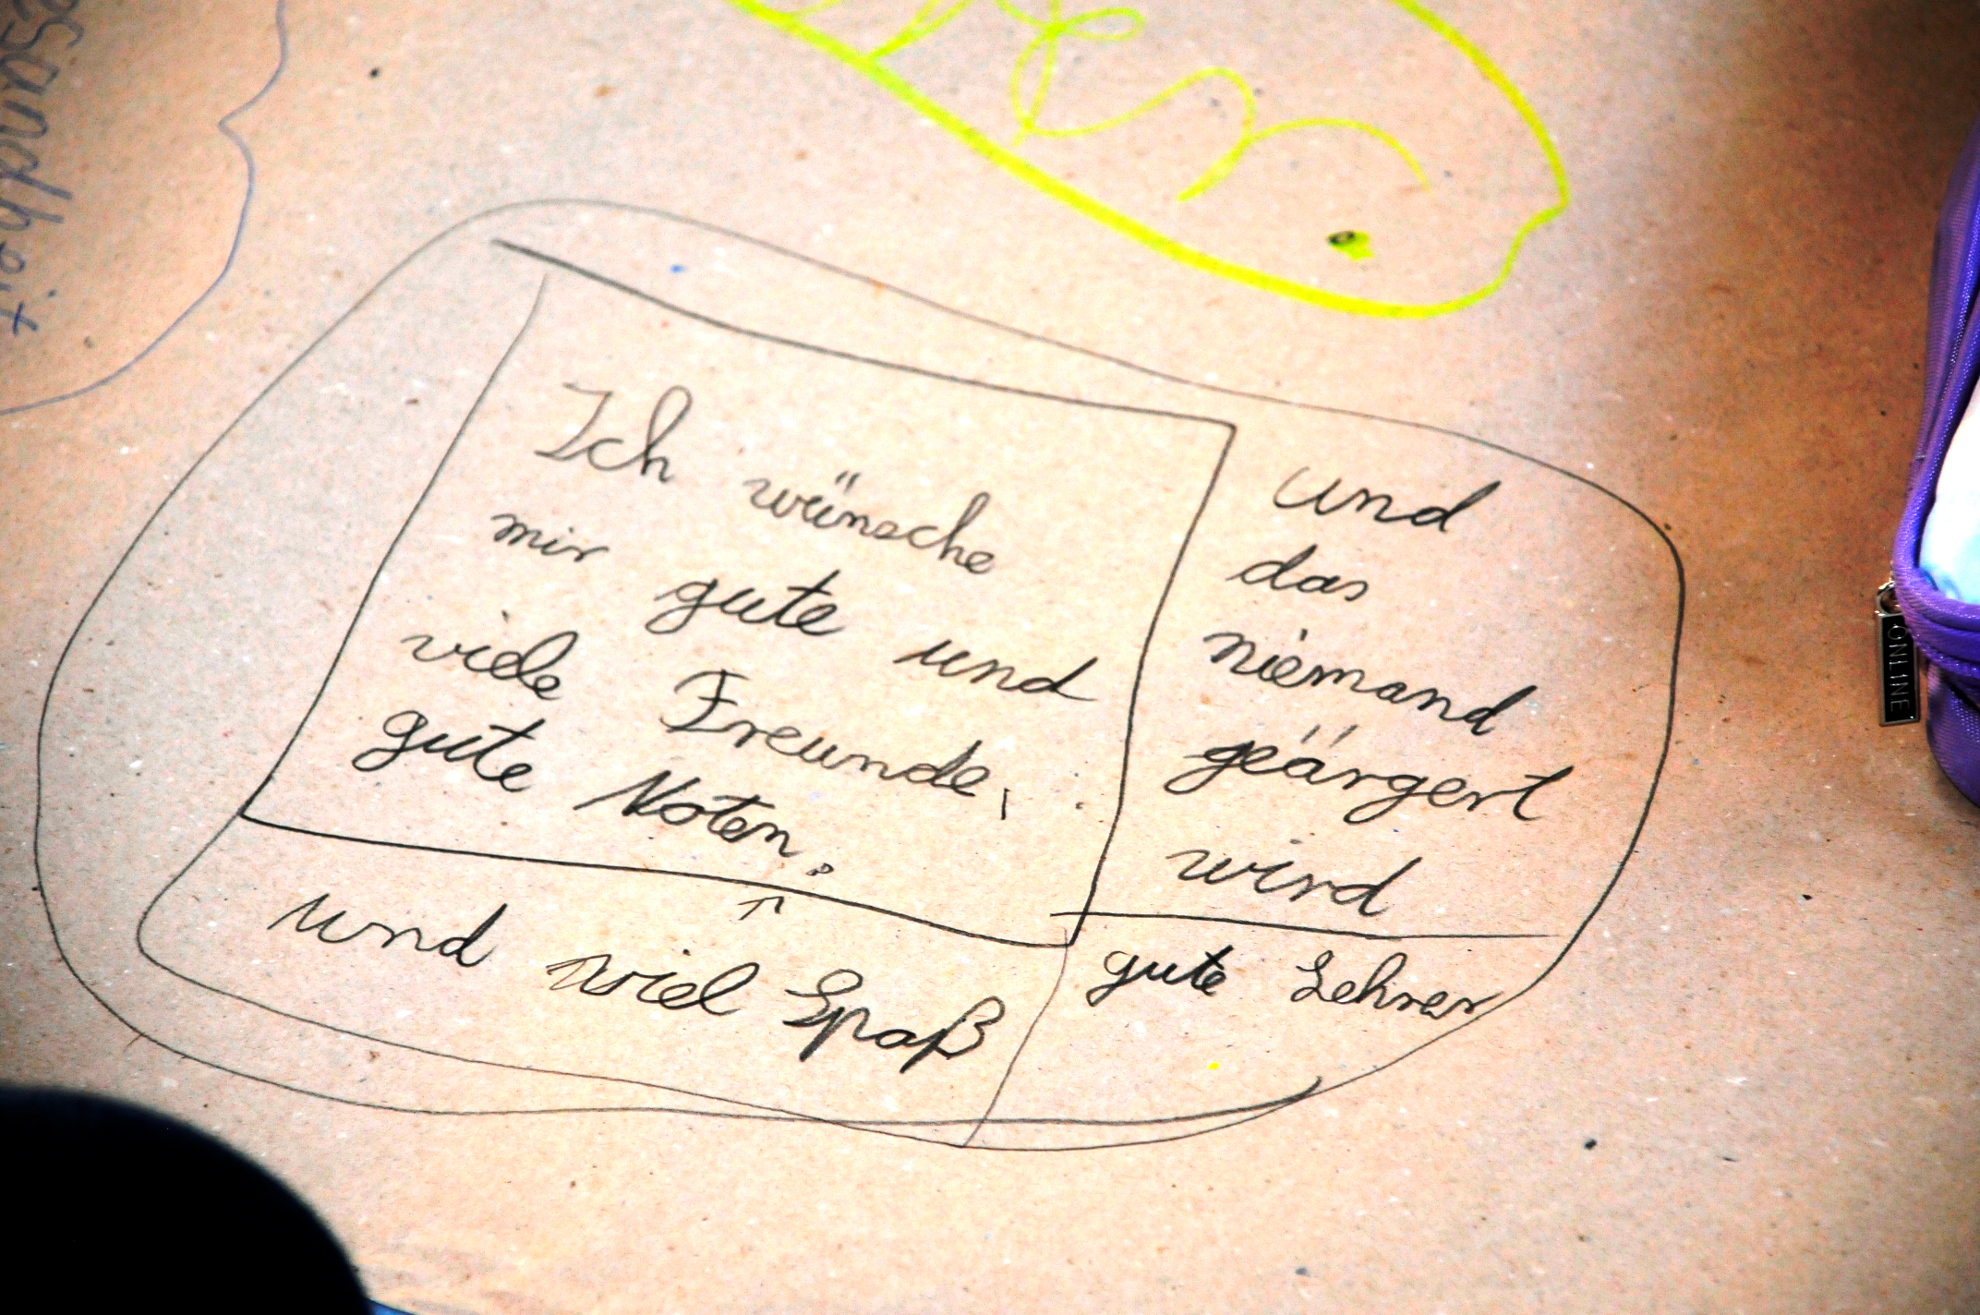 Ich wünsche
mir gute und
viele Freunde,
gute Noten.
und
das
niemand
geärgert
wird
und viel Spaß
gute Lehrer
ONLINE